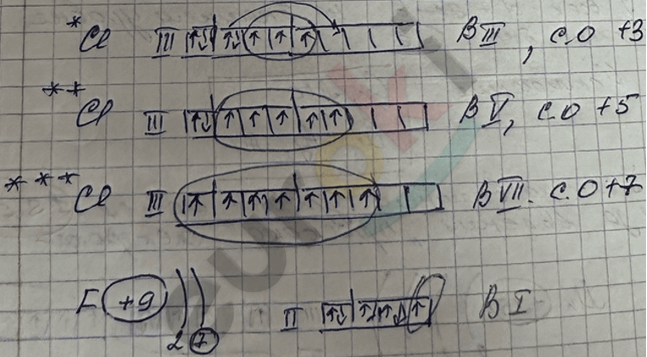 *Cl III ↑↓ ↑↓ ↑ ↑ ↑ В III, с.о +3
**Cl III ↑↓ ↑ ↑ ↑ ↑ ↑ В V, с.о +5
***Cl III ↑ ↑ ↑ ↑ ↑ ↑ ↑ В VII. с.о +7
F +9 )) II ↑↓ ↑↓ ↑↓ ↑ В I
2 7